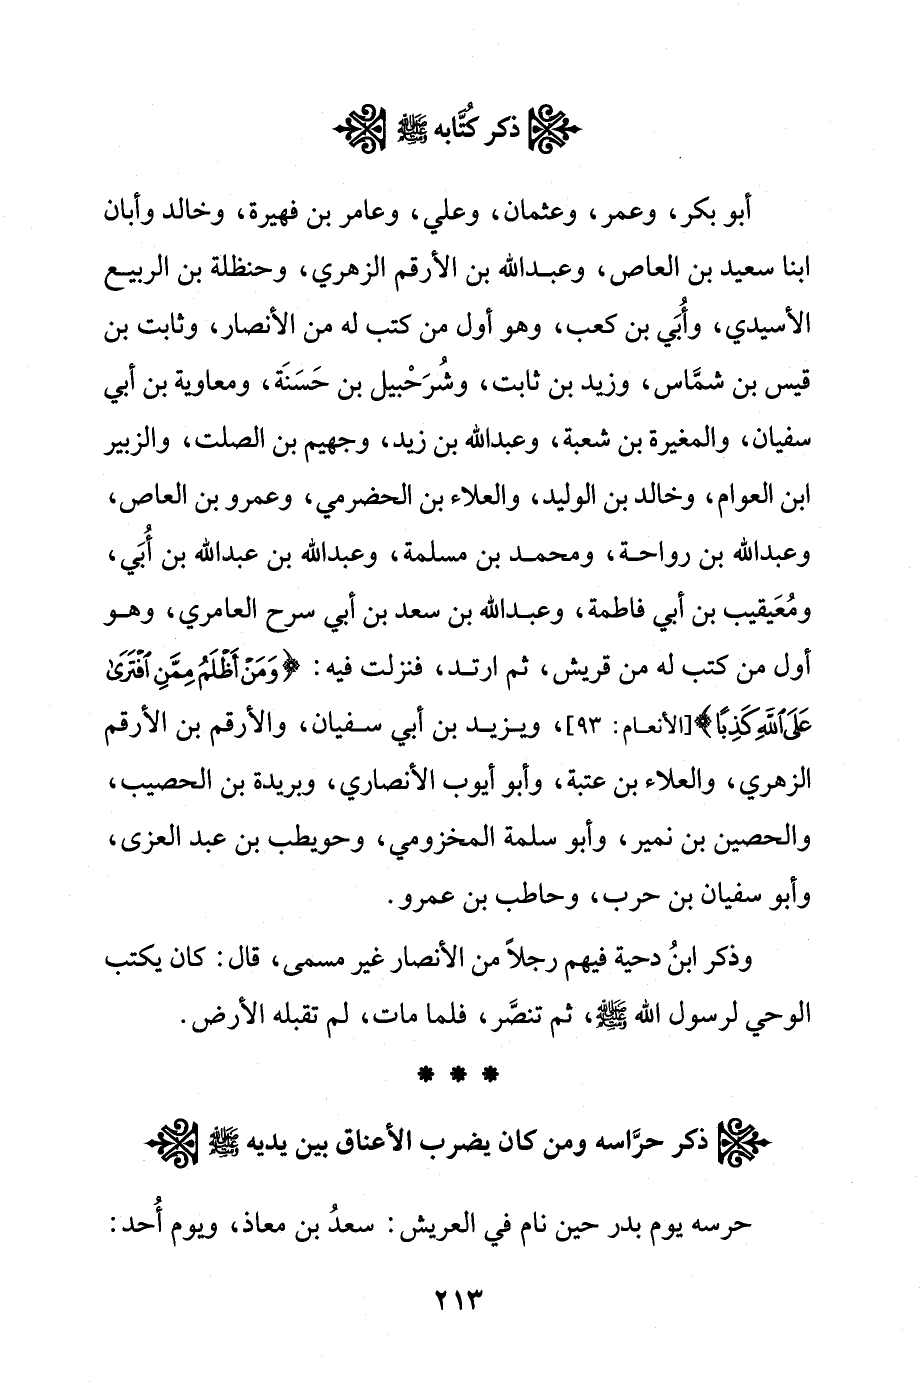 ذكر كُتَّابه ﷺ
أبو بكر، وعمر، وعثمان، وعلي، وعامر بن فهيرة، وخالد وأبان
ابنا سعيد بن العاص، وعبدالله بن الأرقم الزهري، وحنظلة بن الربيع
الأسيدي، وأُبَي بن كعب، وهو أول من كتب له من الأنصار، وثابت بن
قيس بن شمَّاس، وزيد بن ثابت، وشُرَحْبيل بن حَسَنَة، ومعاوية بن أبي
سفيان، والمغيرة بن شعبة، وعبدالله بن زيد، وجهيم بن الصلت، والزبير
ابن العوام، وخالد بن الوليد، والعلاء بن الحضرمي، وعمرو بن العاص،
وعبدالله بن رواحة، ومحمد بن مسلمة، وعبدالله بن عبدالله بن أُبَي،
ومُعَيقيب بن أبي فاطمة، وعبدالله بن سعد بن أبي سرح العامري، وهو
أول من كتب له من قريش، ثم ارتد، فنزلت فيه: ﴿وَمَنْ أَظْلَمُ مِمَّنِ ٱفْتَرَىٰ
عَلَى ٱللَّهِ كَذِبًا﴾[الأنعام: ٩٣]، ويزيد بن أبي سفيان، والأرقم بن الأرقم
الزهري، والعلاء بن عتبة، وأبو أيوب الأنصاري، وبريدة بن الحصيب،
والحصين بن نمير، وأبو سلمة المخزومي، وحويطب بن عبد العزى،
وأبو سفيان بن حرب، وحاطب بن عمرو.
وذكر ابنُ دحية فيهم رجلاً من الأنصار غير مسمى، قال: كان يكتب
الوحي لرسول الله ﷺ، ثم تنصَّر، فلما مات، لم تقبله الأرض.
* * *
ذكر حرَّاسه ومن كان يضرب الأعناق بين يديه ﷺ
حرسه يوم بدر حين نام في العريش: سعدُ بن معاذ، ويوم أُحد:
٢١٣